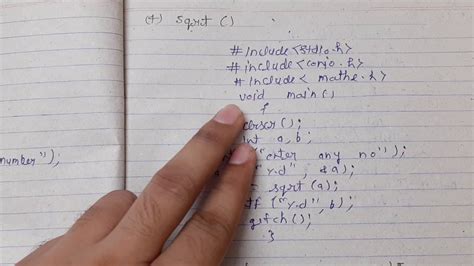 (4) sqrt ()
#include<stdio.h>
#include<conio.h>
#include< mathe.h>
void main()
{
clrscr();
int a,b;
("enter any no");
"%d", &a);
= sqrt(a);
tf ("%d", b);
getch();
}
number");